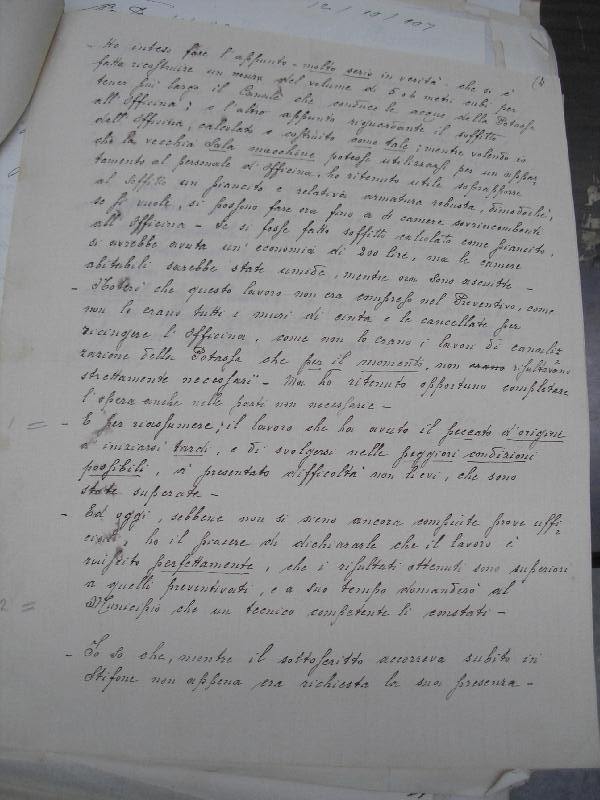 12/10/907
- Ho inteso fare l'appunto - molto serio in verità, che si è
fatto ricostruire un muro del volume di 506 metri cubi per
tener più largo il Canale che conduce le acque della Potassa
all'Officina; e l'altro appunto riguardante il soffitto
dell'Officina, calcolato e costruito come tale; mentre volendo io
che la vecchia Sala macchine potesse utilizzarsi per un appar-
tamento al personale d'Officina, ho ritenuto utile soprapporre
al soffitto un piancito e relativa armatura robusta, dimodochè,
se si vuole, si possono fare ora fino a 4 camere sovraincombenti
all'Officina - Se si fosse fatto soffitto calcolato come piancito,
si avrebbe avuta un'economia di 200 lire, ma le camere
abitabili sarebbe state umide, mentre ora sono asciutte -
- Noterò che questo lavoro non era compreso nel Preventivo, come
non lo erano tutti i muri di cinta e le cancellate per
recingere l'Officina, come non lo erano i lavori di canaliz=
zazione della Potassa che per il momento, non erano risultavano
strettamente necessari - Ma ho ritenuto opportuno completare
l'opera anche nelle parti non necessarie -
1 =
- E per riassumere; il lavoro che ha avuto il peccato d'origine
d'iniziarsi tardi, e di svolgersi nelle peggiori condizioni
possibili, à presentato difficoltà non lievi, che sono
state superate -
- Ed oggi, sebbene non si sieno ancora compiute prove uffi=
ciali, ho il piacere di dichiararle che il lavoro è
riuscito perfettamente, che i risultati ottenuti sono superiori
a quelli preventivati, e a suo tempo domanderò al
2 =
Municipio che un tecnico competente li constati -
- Io so che, mentre il sottoscritto accorreva subito in
Stifone non appena era richiesta la sua presenza -